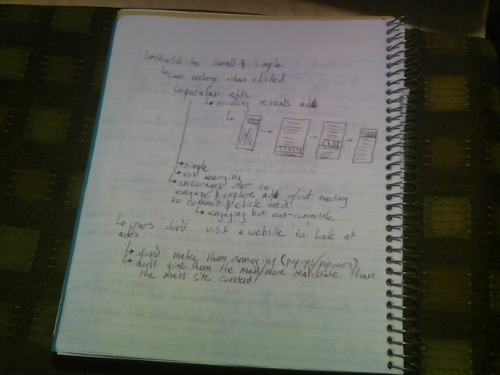 ↳ should be small & simple
↳ can enlarge when clicked
↳ parallax adds
↳ scrolling reveals add
↳ simple
↳ non annoying
↳ encourages user to
engage & explore add w/out needing
to commit & click on it
↳ engaging but non-committe
↳ users don't visit a website to look at
adds
↳ don't make them annoying (popups/popovers)
↳ don't give them the main/more realestate than
the main site content